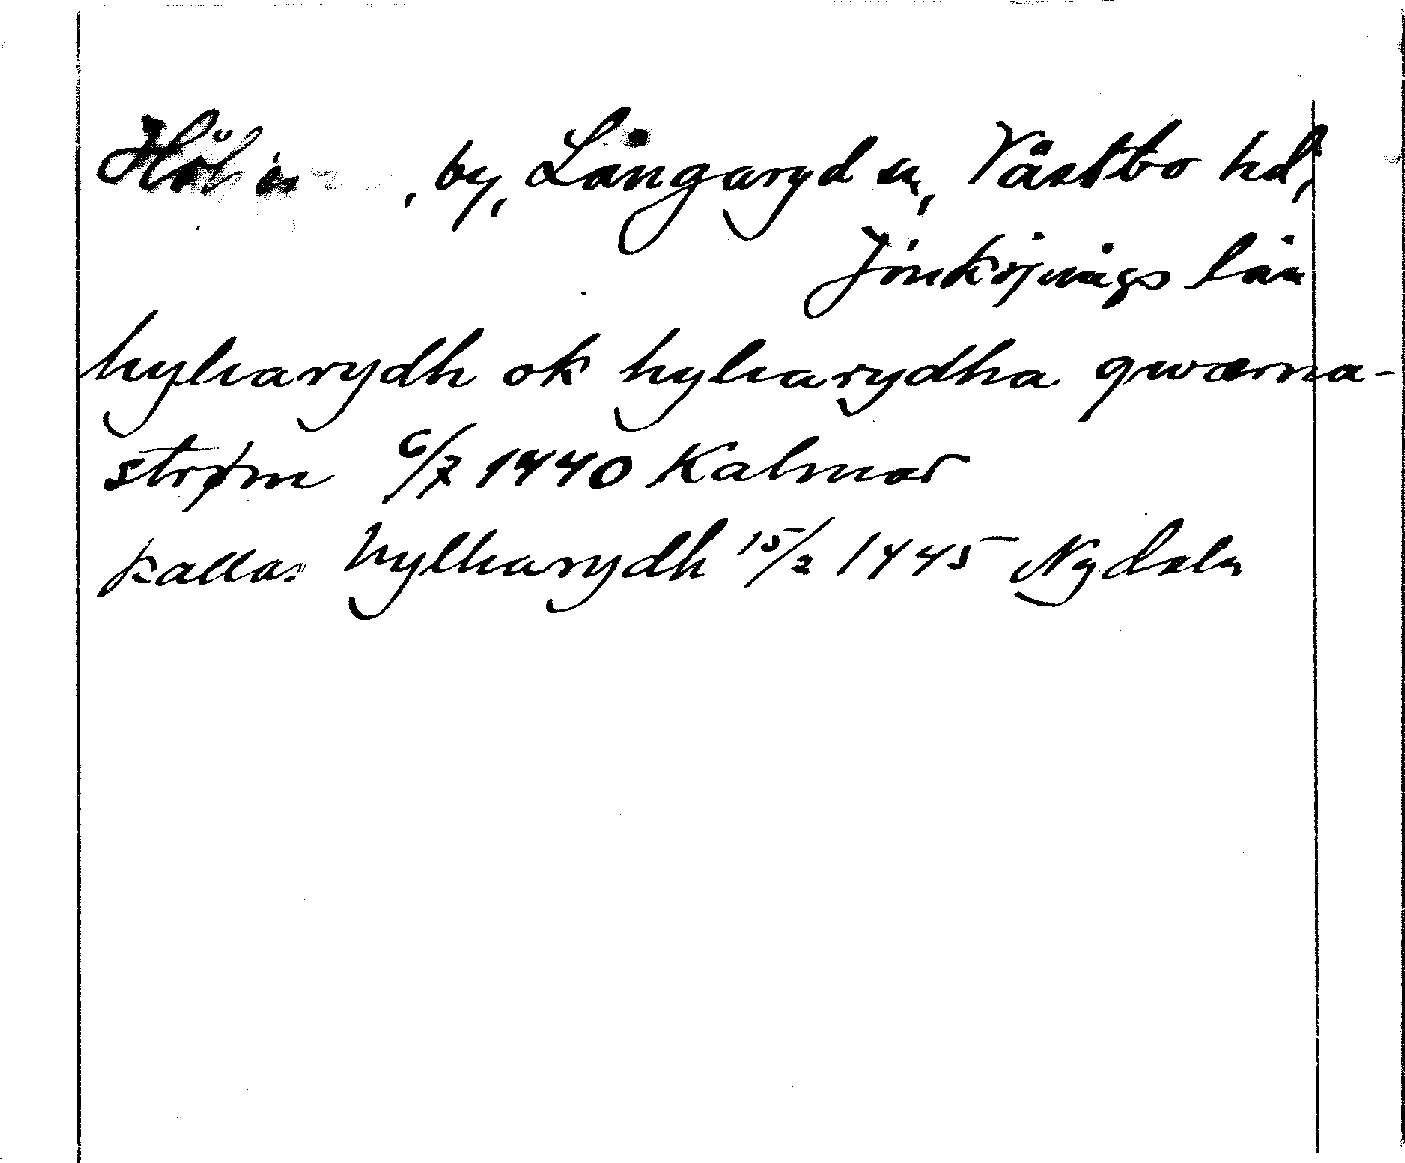 , by, Långaryd sn, Västbo hd,
Jönköpings län
hyltarydh ok hyltarydha qwærna-
strøm 6/7 1440 Kalmar
kallas hyltharydh 15/2 1445 Nydala